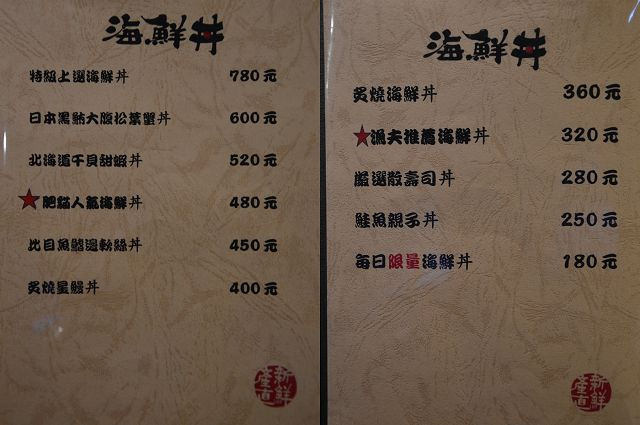 海鮮丼
特級上選海鮮丼 780元
日本黑鮪大腹松葉蟹丼 600元
北海道干貝甜蝦丼 520元
★肥貓人氣海鮮丼 480元
比目魚鰭邊軟絲丼 450元
炙燒星鰻丼 400元
新鮮
產直
海鮮丼
炙燒海鮮丼 360元
★漁夫推薦海鮮丼 320元
嚴選散壽司丼 280元
鮭魚親子丼 250元
每日限量海鮮丼 180元
新鮮
產直